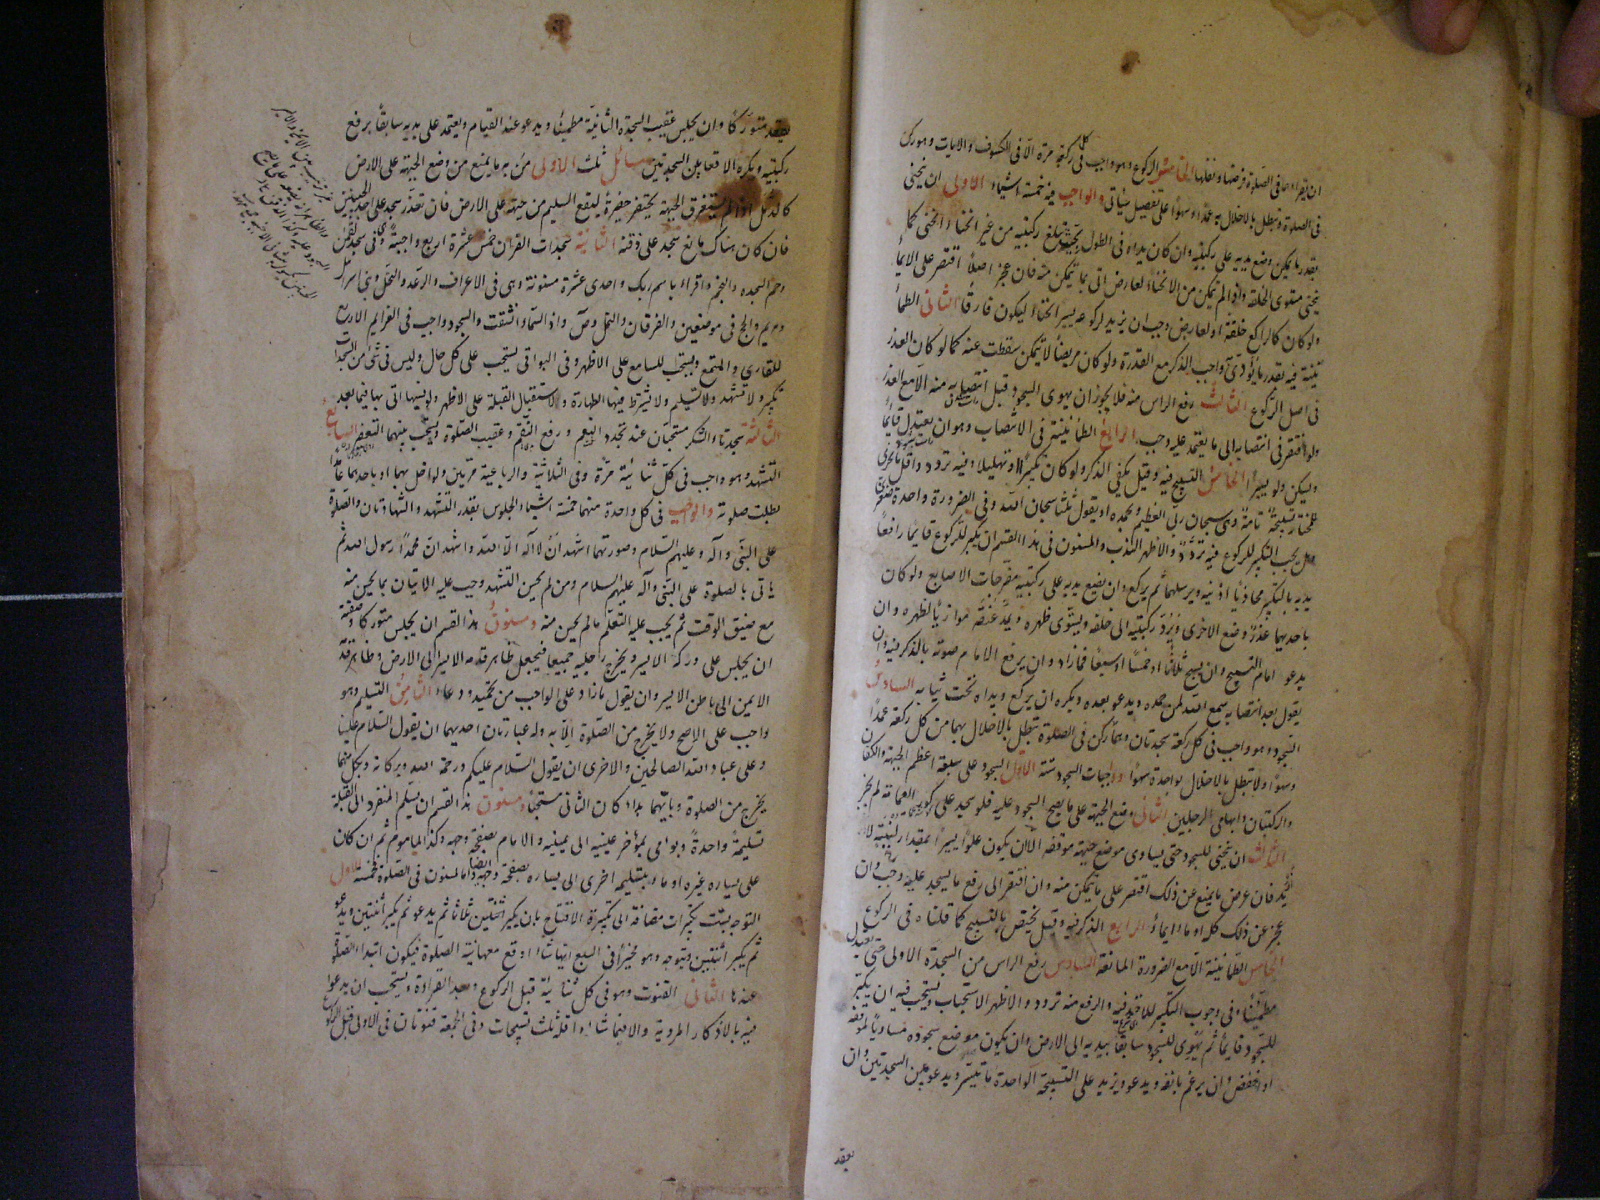 ان يقرأ بهما فى الصلوة فرضها ونفلها الخامس الركوع وهو واجب فى كل ركعة مرة الا فى الكسوف والايات وهو ركن
فى الصلوة وتبطل بالاخلال به عمدا وسهوا على تفصيل سيأتى والواجب فيه خمسة اشياء الاولى ان ينحنى
بقدر ما يمكن وضع يديه على ركبتيه وان كان يداه فى الطول بحيث تبلغ ركبتيه من غير انحناء انحنى كما
ينحنى مستوى الخلقة واذا لم يتمكن من الانحناء لعارض اتى بما يتمكن منه فان عجز اصلا اقتصر على الايماء
ولو كان كالراكع خلقة او لعارض وجب ان يزيد لركوعه يسير انحناء ليكون فارقا الثانى الطما
نينة فيه بقدر ما يؤدى واجب الذكر مع القدرة ولو كان مريضا لا يتمكن سقطت عنه كما لو كان العذر
فى اصل الركوع الثالث رفع الراس منه فلا يجوز ان يهوى للسجود قبل انتصابه منه الا مع العذر
ولو افتقر فى انتصابه الى ما يعتمد عليه وجب الرابع الطمأنينة فى الانتصاب وهو ان يعتدل قائما
ويسكن ولو يسيرا الخامس التسبيح فيه وقيل يكفى الذكر ولو كان تكبيرا او تهليلا وفيه تردد واقل ما يجزى
للمختار تسبيحة تامة وهى سبحان ربى العظيم وبحمده او يقول ثلثا سبحان الله وفى الضرورة واحدة صغرى
وهل يجب التكبير للركوع فيه تردد والاظهر الندب والمسنون فى هذا القسم ان يكبر للركوع قايما رافعا
يديه بالتكبير محاذيا اذنيه ويرسلهما ثم يركع وان يضع يديه على ركبتيه مفرجات الاصابع ولو كان
باحديهما عذر وضع الاخرى ويرد ركبتيه الى خلفه ويستوى ظهره ويمد عنقه موازيا لظهره وان
يدعو امام التسبيح وان يسبح ثلاثا او خمسا او سبعا فمازاد وان يرفع الامام صوته بالذكر فيه وان
يقول بعد انتصابه سمع الله لمن حمده ويدعو بعده ويكره ان يركع ويداه تحت ثيابه السادس
السجود وهو واجب فى كل ركعة سجدتان وهما ركن فى الصلوة تبطل بالاخلال بهما من كل ركعة عمدا
وسهوا ولا تبطل بالاخلال بواحدة سهوا وواجبات السجود ستة الاول السجود على سبعة اعظم الجبهة والكفان
والركبتان وابهامى الرجلين الثانى وضع الجبهة على ما يصح السجود عليه فلو سجد على كور العمامة لم يجز
الثالث ان ينحنى للسجود حتى يساوى موضع جبهته موقفه الا ان يكون علوا يسيرا بمقدار لبنة لا
ازيد فان عرض ما يمنع عن ذلك اقتصر على ما يتمكن منه وان افتقر الى رفع ما يسجد عليه وجب وان
عجز عن ذلك كله اوما ايماء الرابع الذكر فيه وقيل يختص بالتسبيح كما قلناه فى الركوع
الخامس الطمانينة الا مع الضرورة المانعة السادس رفع الراس من السجدة الاولى حتى يعتدل
مطمئنا وفى وجوب التكبير للاخذ فيه والرفع منه تردد والاظهر الاستحباب ويستحب فيه ان يكبر
للسجود قايما ثم يهوى للسجود سابقا بيديه الى الارض وان يكون موضع سجوده مساويا لموقفه
او اخفض وان يرغم بانفه ويدعو ويزيد على التسبيحة الواحدة ما تيسر ويدعو بين السجدتين وان
يقعد
يقعد متوركا وان يجلس عقيب السجدة الثانية مطمئنا ويدعو عند القيام ويعتمد على يديه سابقا برفع
ركبتيه ويكره الاقعاء بين السجدتين مسائل ثلث الاولى من به ما يمنع من وضع الجبهة على الارض
كالدمل اذا لم يستغرق الجبهة يحتفر حفيرة ليقع السليم من جبهته على الارض فان تعذر سجد على احد الجبينين
فان كان هناك مانع سجد على ذقنه الثانية سجدات القران خمس عشرة اربع واجبة وهى فى سجدة لقمن
وحم السجده والنجم واقراء باسم ربك واحدى عشرة مسنونة وهى فى الاعراف والرعد والنحل وبنى اسرائيل
ومريم والحج فى موضعين والفرقان والنمل وص واذا السماء انشقت والسجود واجب فى العزايم الاربع
للقارى والمستمع ويستحب للسامع على الاظهر وفى البواقى يستحب على كل حال وليس فى شئ من السجدات
تكبير ولا تشهد ولا تسليم ولا يشترط فيها الطهارة ولا استقبال القبلة على الاظهر ولو نسيها اتى بها فيما بعد
الثالثة سجدتا الشكر مستحبتان عند تجدد النعم ورفع النقم وعقيب الصلوة ويستحب بينهما التعفير السابع
التشهد وهو واجب فى كل ثنائية مرة وفى الثلاثية والرباعية مرتين ولو اخل بهما او باحدهما عامدا
بطلت صلوته والواجب فى كل واحدة منهما خمسة اشياء الجلوس بقدر التشهد والشهادتان والصلوة
على النبى وآله وعليهم السلام وصورتهما اشهد ان لا اله الا الله واشهد ان محمدا رسول الله ثم
يأتى بالصلوة على النبى وآله عليهم السلام ومن لم يحسن التشهد وجب عليه الاتيان بما يحسن منه
مع ضيق الوقت ثم يجب عليه التعلم ما لم يحسن منه ومسنون هذا القسم ان يجلس متوركا وصفته
ان يجلس على وركه الايسر ويخرج رجليه جميعا فيجعل ظاهر قدمه الايسر الى الارض وظاهر قدمه
الايمن الى باطن الايسر وان يقول مازاد على الواجب من تحميد ودعاء الثامن التسليم وهو
واجب على الاصح ولا يخرج من الصلوة الا به وله عبارتان احديهما ان يقول السلام علينا
وعلى عباد الله الصالحين والاخرى ان يقول السلام عليكم ورحمة الله وبركاته وبكل منهما
يخرج من الصلوة وبايهما بدا كان الثانى مستحبا ومسنون هذا القسم ان يسلم المنفرد الى القبلة
تسليمة واحدة ويومى بمؤخر عينيه الى يمينه والامام بصفحة وجهه وكذا الماموم ثم ان كان
على يساره غيره اوما بتسليمة اخرى الى يساره بصفحة وجهه ايضا واما المسنون فى الصلوة فخمسة الاول
التوجه بست تكبيرات مضافة الى تكبيرة الافتتاح بان يكبر ثلاثا ثم يدعو ثم يكبر اثنتين ويدعو
ثم يكبر اثنتين ويتوجه وهو مخير فى السبع ايتها شاء اوقع معها نية الصلوة فيكون ابتداء الصلوة
عندها الثانى القنوت وهو فى كل ثنائية قبل الركوع وبعد القراءة ويستحب ان يدعو
فيه بالاذكار المروية والا فبما شاء واقله ثلث تسبيحات وفى الجمعة قنوتان فى الاولى قبل الركوع